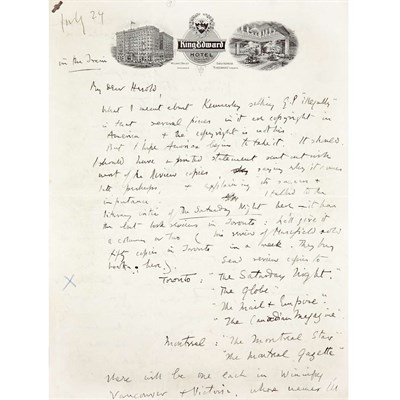 July 24
King Edward
HOTEL
in the Train
My Dear Harold,
What I meant about Kennerley selling G.P. "illegally"
is that several pieces in it are copyright in
America & the copyright is not his.
But I hope America begins to take it. It should.
I should have a printed statement sent out with
most of the review copies saying why it comes
late perhaps, & explaining its
importance. I talked to the
literary critic of The Saturday Night here – it has
the best book reviews in Toronto: he'll give it
a column or two (his review of Masefield sold
fifty copies in Toronto in a week. They buy
books here).
Send review copies to
Toronto: "The Saturday Night."
"The Globe"
"The Mail & Empire"
"The Canadian Magazine"
Montreal: "The Montreal Star"
"The Montreal Gazette"
There will be one each in Winnipeg
Vancouver & Victoria, whose names I'll